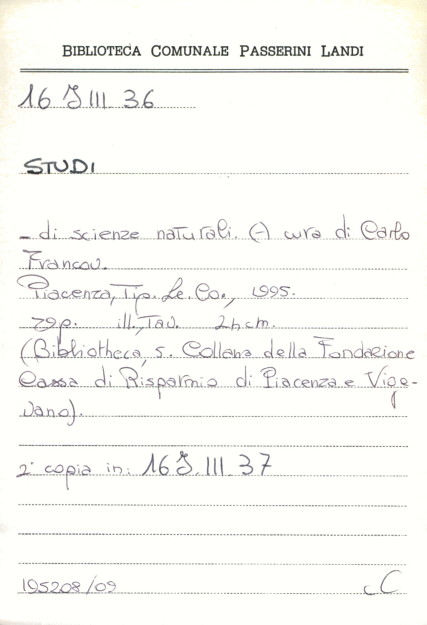 BIBLIOTECA COMUNALE PASSERINI LANDI
16 J III 36
STUDI
- di scienze naturali. (-) cura di Carlo
Francou.
Piacenza, Tip. Le.Co., 1995.
79p. ill., Tav. 24cm.
(Bibliotheca, 5. Collana della Fondazione
Cassa di Risparmio di Piacenza e Vige-
vano).
2ª copia in: 16 J. III. 37
195208/09